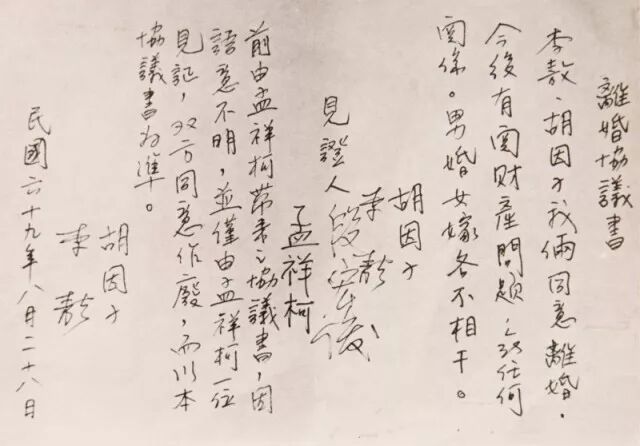 離婚協議書
李敖、胡因子我倆同意離婚,
今後有関財產問題,任何
関係。男婚女嫁各不相干。
胡因子
李敖
見證人 段宏俊
孟祥柯
前由孟祥柯帶來之協議書,因
語意不明,並僅由孟祥柯一位
見証,双方同意作廢,而以本
協議書為準。
胡因子
李敖
民國六十九年八月二十八日